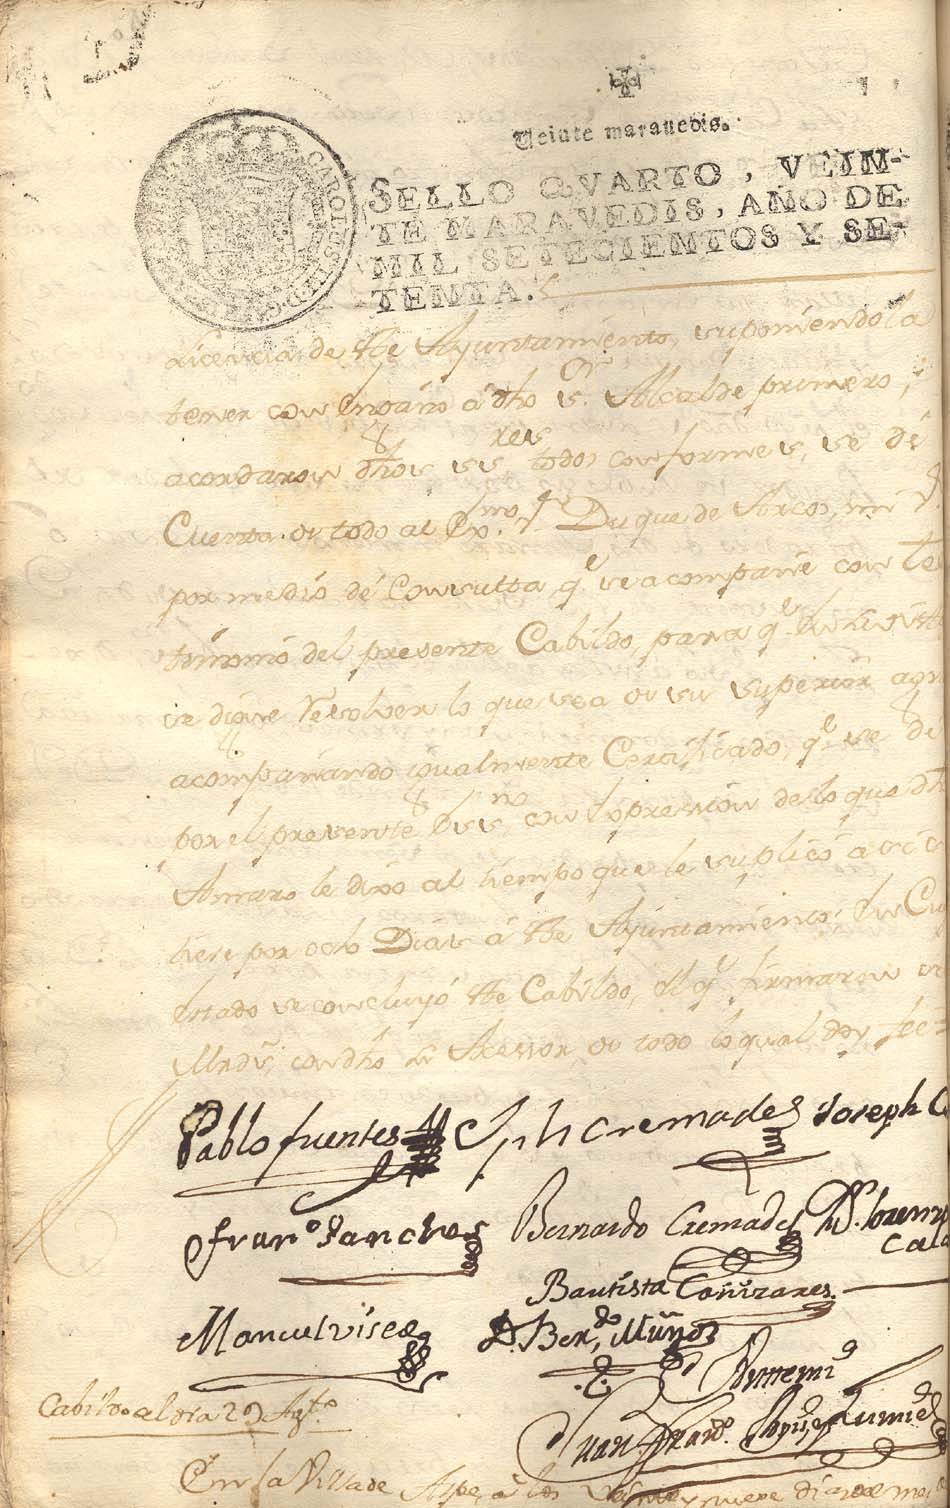 Veinte maravedis.
SELLO QVARTO, VEIN-
TE MARAVEDIS, AÑO DE
MIL SETECIENTOS Y SE-
TENTA.
CAROLUS III D G
licencia de este Ayuntamiento, suponiendola
tener con engaño á dho Sor. Alcalde primero,
acordaron dhos ssres todos conformes, se dé
Cuenta de todo al Exmo. Sr Duque de Arcos, mi Sr
por medio de Consulta qe se acompañe con tes
timonio del presente Cabildo, para qe
se digne Resolver lo que sea de su superior agra
acompañando igualmente Certificado, qe se dé
por el presente Essno, con expresion de lo que dho
Amaro le dixo al tiempo que le suplicó
por ocho Dias á este Ayuntamiento, En Cuyo
estado se concluyó este Cabildo, el qe firmaron
Mrds. con dho Sr Asessor, de todo lo qual doy fee
Pablo fuentes Jph Cremades Joseph
Franco Sanches Bernardo Cremades Dr. Lorenzo
Manuel Visedo Bautista Cañizares
D. Berdo. Muños
Antemi
Juan Franco.
Cabildo al dia 29 Agto
En la Villa de Aspe, á los veinte y nueve dias de mes